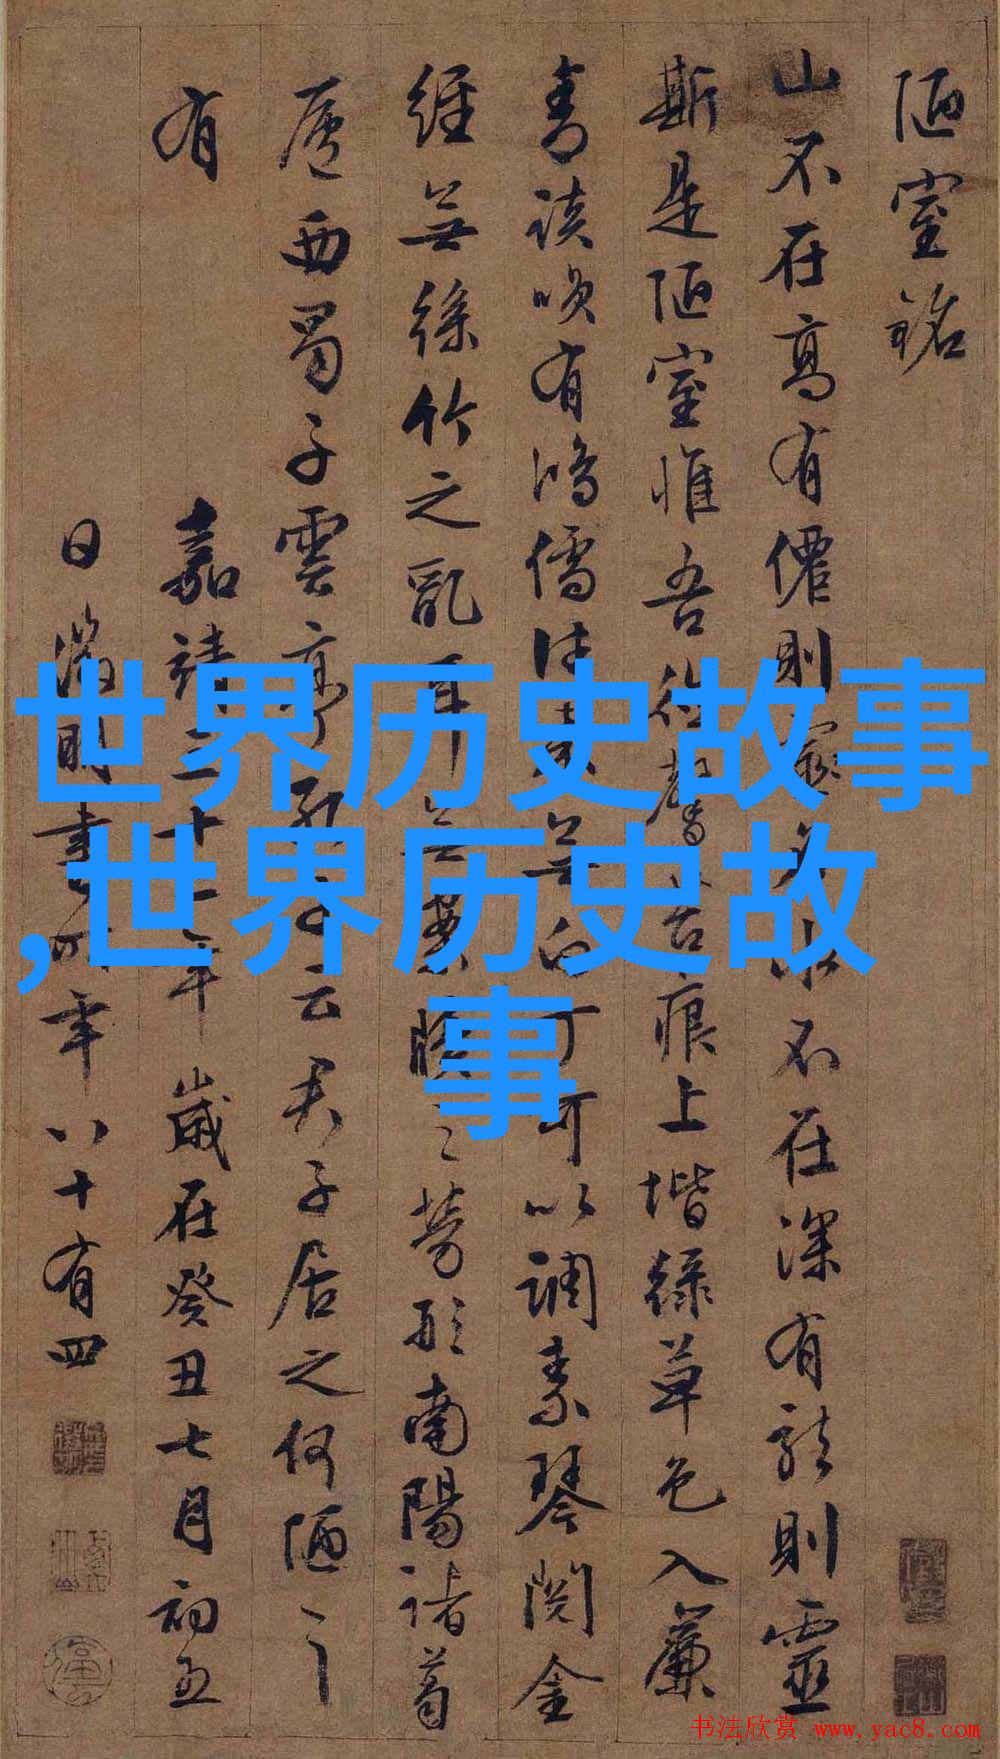 陋室銘
山不在高有僊則名水不在深有龍則靈
斯是陋室惟吾德馨苔痕上堦緑草色入簾
青談咲有鴻儒往来無白丁可以調素琴閱金
經無絲竹之亂耳無案牘之勞形南陽諸葛
廬西蜀子雲亭孔子云君子居之何陋之
有
嘉靖三十二年歲在癸丑七月初五
日徵明書時年八十有四
世界历史故事
,世界历史故
事
书法欣赏 www.yac8.com